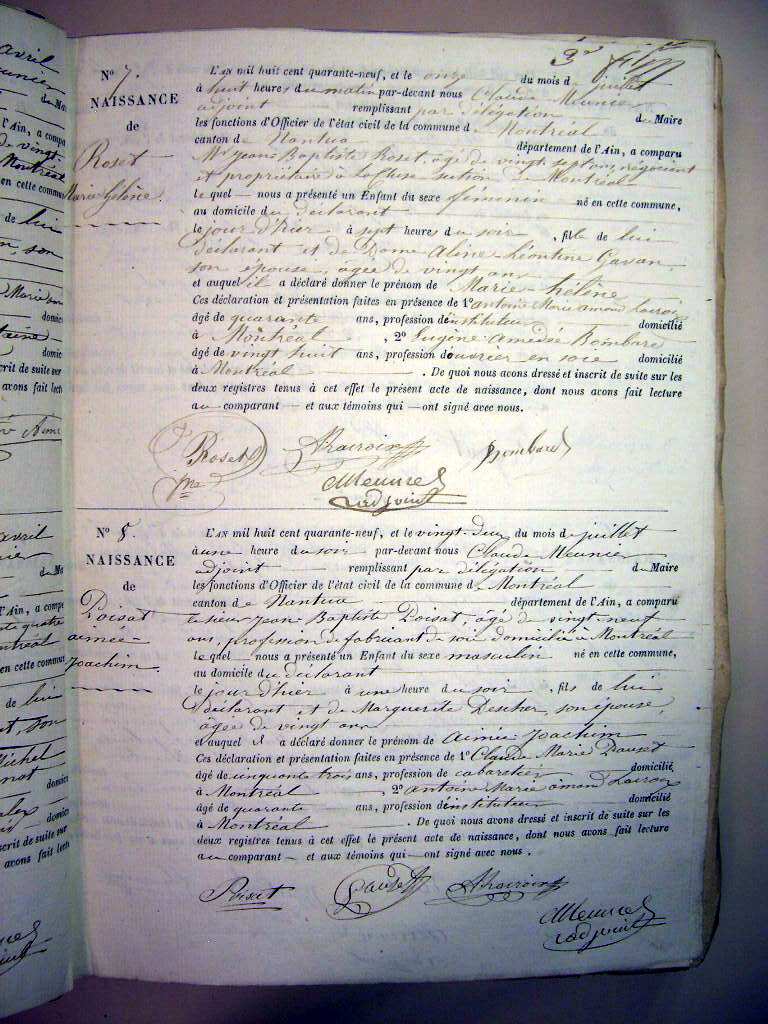 avril
Meunier
de Maire
l'Ain, a compa
de vingt-
Montréal
en cette commune
de lui
son
Marie
domic
domic
scrit de suite sur
avons fait lectu
avril
de Maire
l'Ain, a compa
quatre
Montréal
en cette commune
de lui
, son
Michel
domici
domici
scrit de suite sur
avons fait lect
3e
N° 7.
NAISSANCE
de
Roset
Marie hélène.
L'AN mil huit cent quarante-neuf, et le onze du mois de juillet
à huit heures du matin par-devant nous Claude Meunier
adjoint remplissant par délégation du Maire
les fonctions d'Officier de l'état civil de la commune de Montréal
canton de Nantua département de l'Ain, a comparu
Mr Jean Baptiste Roset, âgé de vingt sept ans, négociant
et propriétaire à Lacluse section de Montréal
le quel — nous a présenté un Enfant du sexe féminin né en cette commune,
au domicile du déclarant
le jour d'hier à sept heures du soir, fille de lui
déclarant et de Dame Aline Léontine Gavan,
son épouse, âgée de vingt ans
et auquel il a déclaré donner le prénom de Marie hélène
Ces déclaration et présentation faites en présence de 1° antoine Marie amand Lacroix
âgé de quarante ans, profession d'instituteur domicilié
à Montréal, 2° Eugène Amédée Bombard
âgé de vingt huit ans, profession d'ouvrier en soie domicilié
à Montréal. De quoi nous avons dressé et inscrit de suite sur les
deux registres tenus à cet effet le présent acte de naissance, dont nous avons fait lecture
au comparant — et aux témoins qui — ont signé avec nous.
J. Roset Lacroix Bombard
CMeunier
adjoint
N° 8.
NAISSANCE
de
Poisat
aimée
Joachim.
L'AN mil huit cent quarante-neuf, et le vingt-deux du mois de juillet
à une heure du soir par-devant nous Claude Meunier
adjoint remplissant par délégation du Maire
les fonctions d'Officier de l'état civil de la commune de Montréal
canton de Nantua département de l'Ain, a comparu
le sieur Jean Baptiste Poisat, âgé de vingt-neuf
ans, profession de fabricant de soie domicilié à Montréal
le quel — nous a présenté un Enfant du sexe masculin né en cette commune,
au domicile du déclarant
le jour d'hier à une heure du soir, fils de lui
déclarant et de Marguerite Descher, son épouse,
âgée de vingt ans
et auquel il a déclaré donner le prénom de Aimée Joachim
Ces déclaration et présentation faites en présence de 1° Claude Marie Dauset
âgé de cinquante trois ans, profession de cabaretier domicilié
à Montréal, 2° antoine Marie amand Lacroix
âgé de quarante ans, profession d'instituteur domicilié
à Montréal. De quoi nous avons dressé et inscrit de suite sur les
deux registres tenus à cet effet le présent acte de naissance, dont nous avons fait lecture
au comparant — et aux témoins qui — ont signé avec nous.
Poisat Dauset Lacroix
CMeunier
adjoint